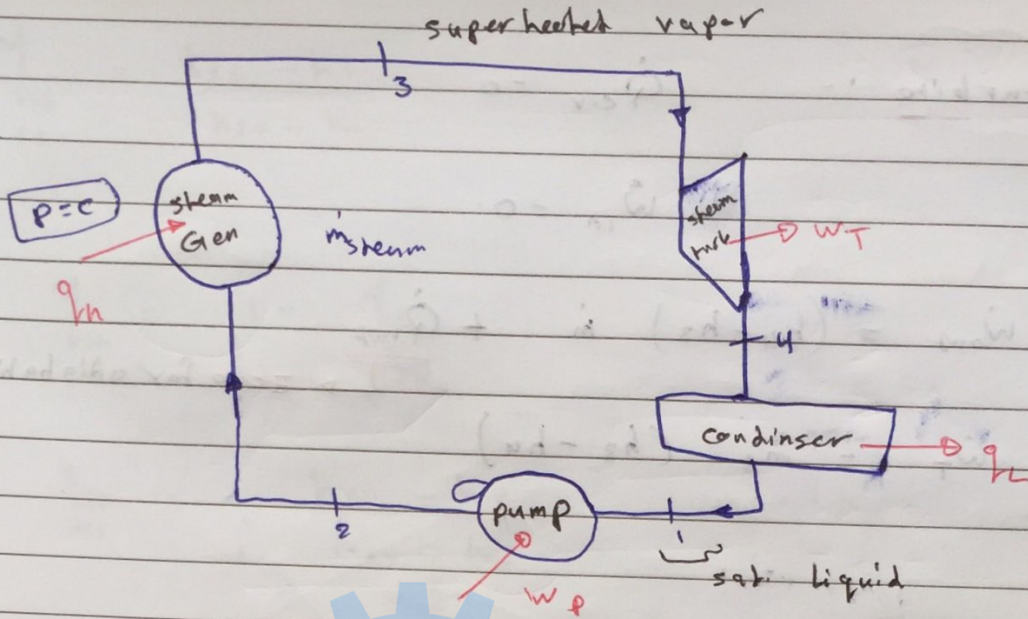 superheated vapor
3
P=C
steam
Gen
ṁsteam
qh
steam
turb
WT
4
condinser
qL
pump
2
1
sat. liquid
WP